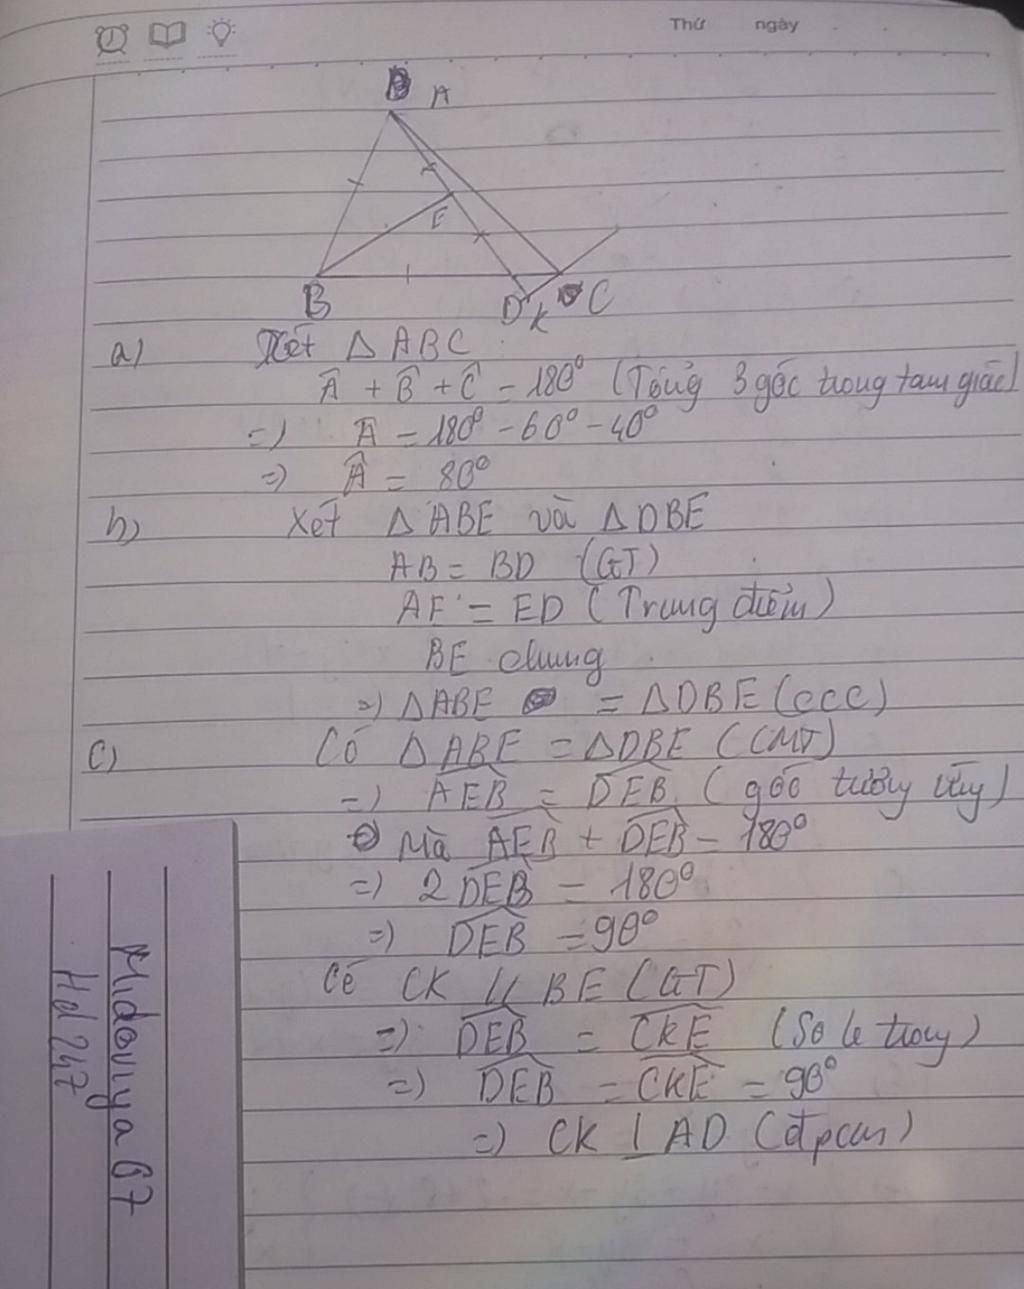 Thứ ngày
A
E
B
D K C
a) Xét Δ ABC
Â + B̂ + Ĉ = 180° (Tổng 3 góc trong tam giác)
=) Â = 180° - 60° - 40°
=) Â = 80°
b) Xét Δ ABE và Δ DBE
AB = BD (GT)
AE = ED (Trung điểm)
BE chung
=) Δ ABE = Δ DBE (ccc)
c) Có Δ ABE = Δ DBE (CMT)
=) AEB = DEB (góc tương ứng)
Mà AEB + DEB = 180°
=) 2 DEB = 180°
=) DEB = 90°
Có CK // BE (GT)
=) DEB = CKE (So le trong)
=) DEB = CKE = 90°
=) CK ⊥ AD (đpcm)
Midoriya 67
Hd 247